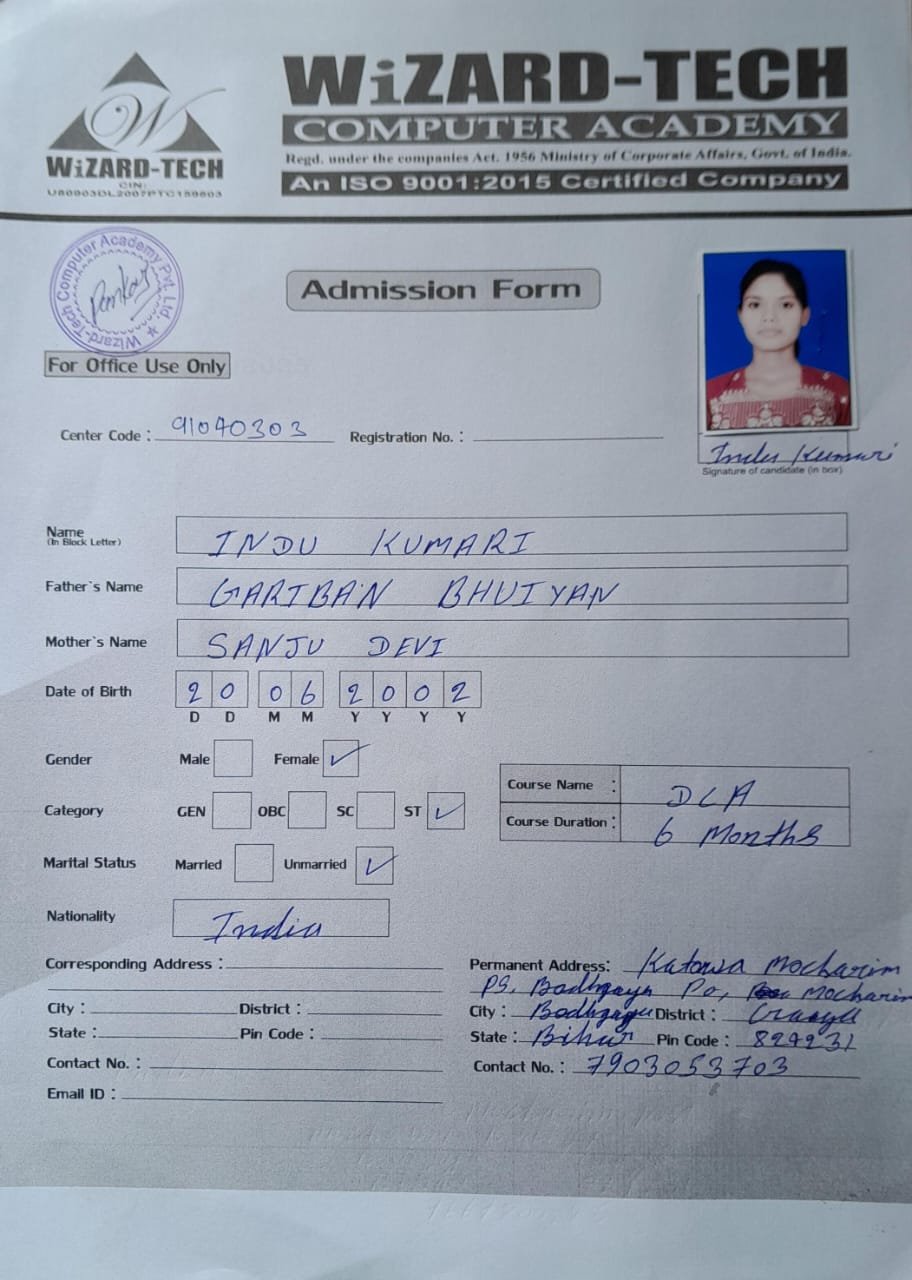 WiZARD-TECH
COMPUTER ACADEMY
Regd. under the companies Act. 1956 Ministry of Corporate Affairs, Govt. of India.
An ISO 9001:2015 Certified Company
W
WiZARD-TECH
CIN:
U80903DL2007PTC159803
Wizard-Tech Computer Academy Pvt. Ltd.
Pankaj
Admission Form
For Office Use Only
Center Code : 91040303 Registration No. :
Indu Kumari
Signature of candidate (in box)
Name INDU KUMARI
(In Block Letter)
Father`s Name GARIBAN BHUIYAN
Mother`s Name SANJU DEVI
Date of Birth 20 06 2002
D D M M Y Y Y Y
Gender Male Female ✓
Category GEN OBC SC ST ✓
Course Name : DCA
Course Duration : 6 Months
Marital Status Married Unmarried ✓
Nationality India
Corresponding Address :
City : District :
State : Pin Code :
Contact No. :
Email ID :
Permanent Address: Katorwa Mocharim
PS, Bodhgaya Po, Mocharim
City : Bodhgaya District : Gaya
State : Bihar Pin Code : 824231
Contact No. : 7903053703